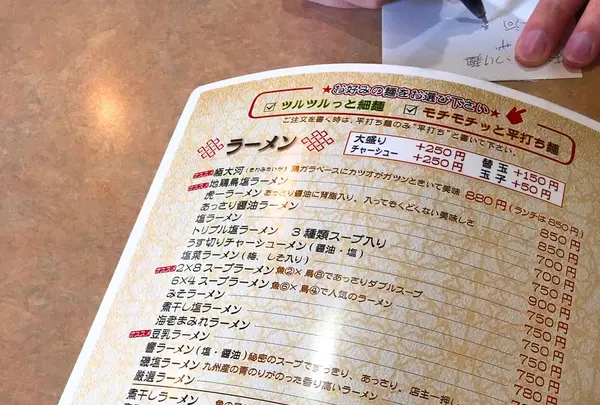 つけ麺
★お好みの麺をお選び下さい★
☑ツルツルっと細麺 ☑モチモチッと平打ち麺
ご注文を書く時は、平打ち麺のみ“平打ち”と書いて下さい。
ラーメン
大盛り +250円 替玉 +150円
チャーシュー +250円 玉子 +50円
極大河(きわみたいが) 鶏ガラベースにカツオがガツンときいて美味 880円(ランチは850円)
地鶏鳥塩ラーメン 850円
虎一ラーメン あっさり醤油に背脂入り、入ってもくどくない美味しさ 850円
あっさり醤油ラーメン 700円
塩ラーメン 700円
トリプル塩ラーメン 3種類スープ入り 750円
うす切りチャーシューメン(醤油・塩) 900円
塩梅ラーメン(梅、しそ入り) 750円
2×8スープラーメン 魚②×鳥⑧であっさりダブルスープ 750円
6×4スープラーメン 魚⑥×鳥④で人気のラーメン 750円
みそラーメン 780円
煮干し塩ラーメン 750円
海老まみれラーメン
豆乳ラーメン
醤ラーメン(塩・醤油) 秘密のスープですっきり、あっさり、店主一押し
磯塩ラーメン 九州産の青のりがのった香り高いラーメン
厳選ラーメン
煮干しラーメン